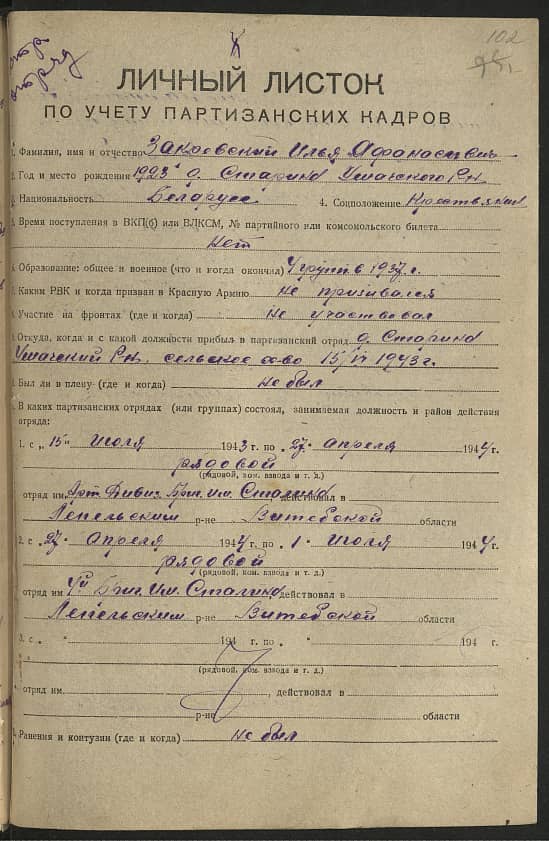 102
ЛИЧНЫЙ ЛИСТОК
ПО УЧЕТУ ПАРТИЗАНСКИХ КАДРОВ
Фамилия, имя и отчество Илья Афанасьевич
2. Год и место рождения 1923 д. Старина Ушачского Р-н
Национальность Беларусс 4. Соцположение Крестьянин
Время поступления в ВКП(б) или ВЛКСМ, № партийного или комсомольского билета
Нет
Образование: общее и военное (что и когда окончил) 4 групп в 1937 г.
Каким РВК и когда призван в Красную Армию не призывался
Участие на фронтах (где и когда) Не участвовал
Откуда, когда и с какой должности прибыл в партизанский отряд д. Старина
Ушачский Р-н. сельское х-во 15 1943 г.
Был ли в плену (где и когда) не был
В каких партизанских отрядах (или группах) состоял, занимаемая должность и район действия
отряда:
1. с „15" Июля 1943 г. по „27" апреля 1944 г.
рядовой
(рядовой, ком. взвода и т. д.)
отряд им. Бриг. им. Сталина действовал в
Лепельским р-не Витебской области
2. с „27" апреля 1944 г. по „1" Июля 1944 г.
рядовой
(рядовой, ком. взвода и т. д.)
отряд им Бриг. Им. Сталина действовал в
Лепельским р-не Витебской области
3. с „ " 194 г. по „ " 194 г.
(рядовой, ком. взвода и т. д.)
отряд им. , действовал в
р-не области
Ранения и контузии (где и когда) не был